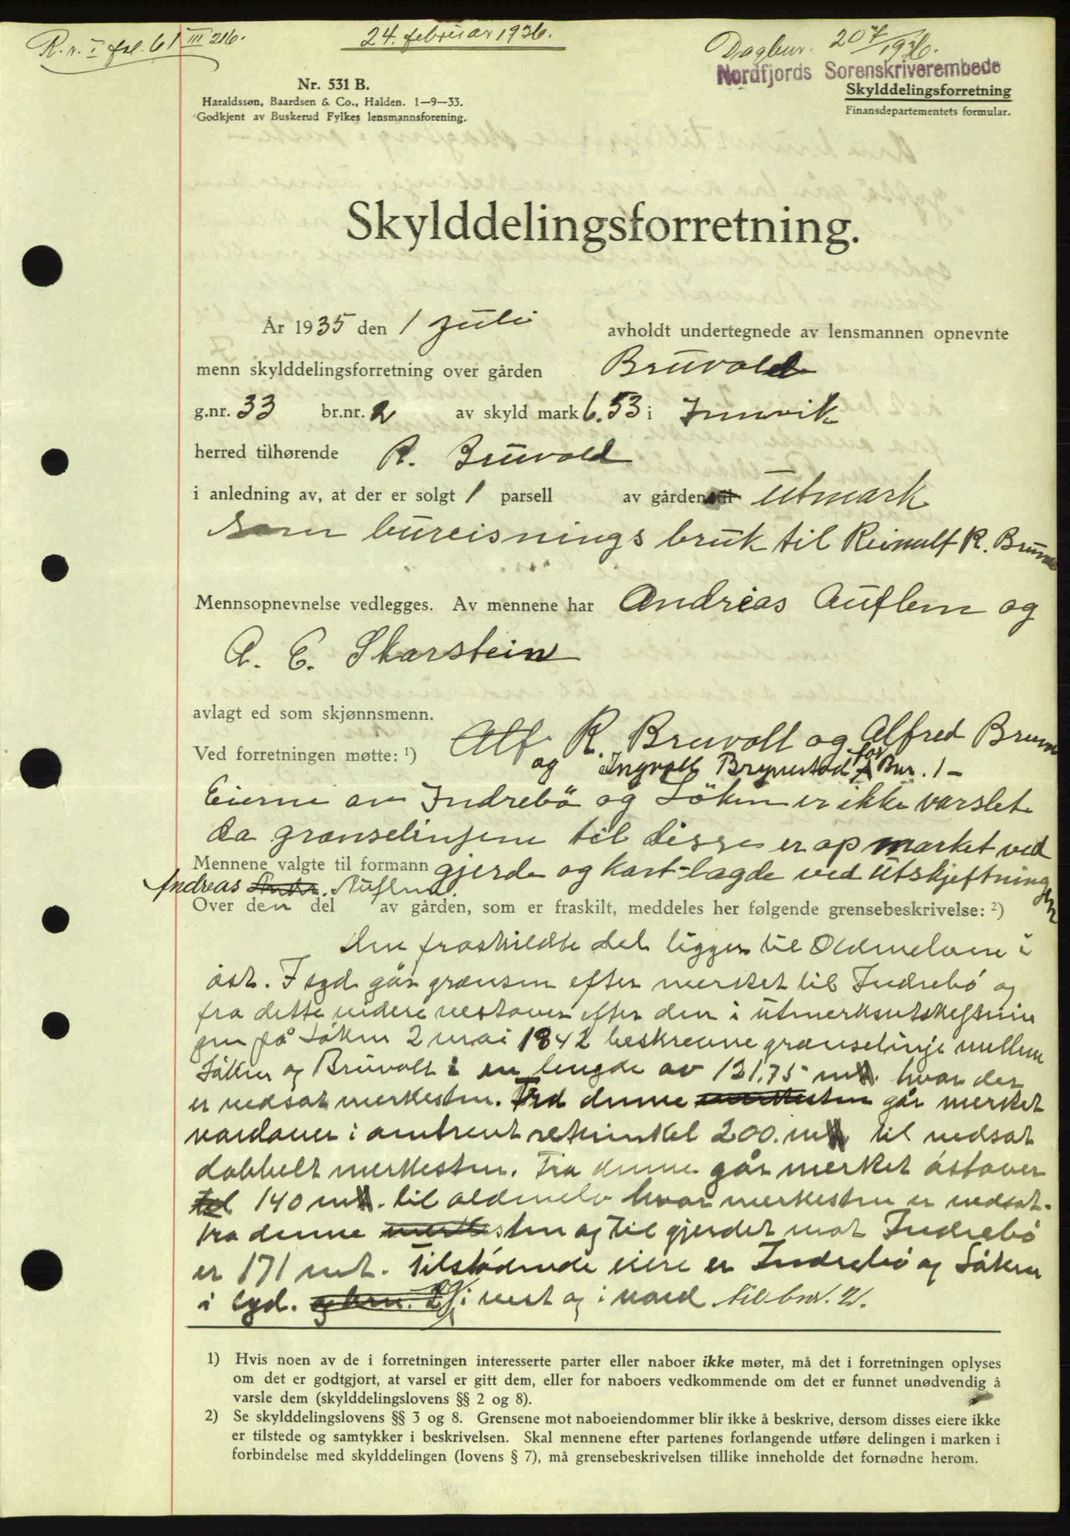 R.n. I fol. 61 III 216.
24. februar 1936.
Dagbnr. 207/1936.
Nordfjords Sorenskriverembede
Nr. 531 B.
Haraldssøn, Baardsen & Co., Halden. 1—9—33.
Godkjent av Buskerud Fylkes lensmannsforening.
Skylddelingsforretning
Finansdepartementets formular.
Skylddelingsforretning.
År 1935 den 1 juli avholdt undertegnede av lensmannen opnevnte
menn skylddelingsforretning over gården Bruvold
g.nr. 33 br.nr. 2 av skyld mark 6.53 i Innvik
herred tilhørende R. Bruvold
i anledning av, at der er solgt 1 parsell av gårdens utmark
som bureisnings bruk til R.
Mennsopnevnelse vedlegges. Av mennene har Andreas Auflem og
A. E. Skarstein
avlagt ed som skjønnsmenn.
Ved forretningen møtte: ¹) Alf R. Bruvoll og Alfred
og Ingvald Brynestad for Bnr. 1 –
Eierne av Indrebö og Söken er ikke varslet
da grænselinjene til disse er op market ved
Mennene valgte til formann gjerde og kart-lagde ved utskjeftning
Andreas Auflem.
Over den del av gården, som er fraskilt, meddeles her følgende grensebeskrivelse: ²)
Den fraskildte del ligger til Oldemelane i
öst. I syd går grænsen efter merket til Indrebö og
fra dette videre vestover efter den i utmerksutskefsnin
gen på Söken 2 mai 1842 beskrevne grænselinje mellem
Såken og Bruvolt i en lengde av 131,75 mt. hvor der
er nedsat merkesten. Fra denne går merket
nordover i omtrent retvinkel 200. mt til nedsat
dobbelt merkesten. Fra denne går merket östover
140 mt. til oldemelo hvor merkesten er nedsat.
Fra denne sten og til gjerdet mot Indrebö
er 171 mt. Tilstödende eiere er Indrebö og Såken
i syd. og i vest og i nord til bnr. 2.
1) Hvis noen av de i forretningen interesserte parter eller naboer ikke møter, må det i forretningen oplyses
om det er godtgjort, at varsel er gitt dem, eller for naboers vedkommende om det er funnet unødvendig å
varsle dem (skylddelingslovens §§ 2 og 8).
2) Se skylddelingslovens §§ 3 og 8. Grensene mot naboeiendommer blir ikke å beskrive, dersom disses eiere ikke
er tilstede og samtykker i beskrivelsen. Skal mennene efter partenes forlangende utføre delingen i marken i
forbindelse med skylddelingen (lovens § 7), må grensebeskrivelsen tillike inneholde det fornødne herom.